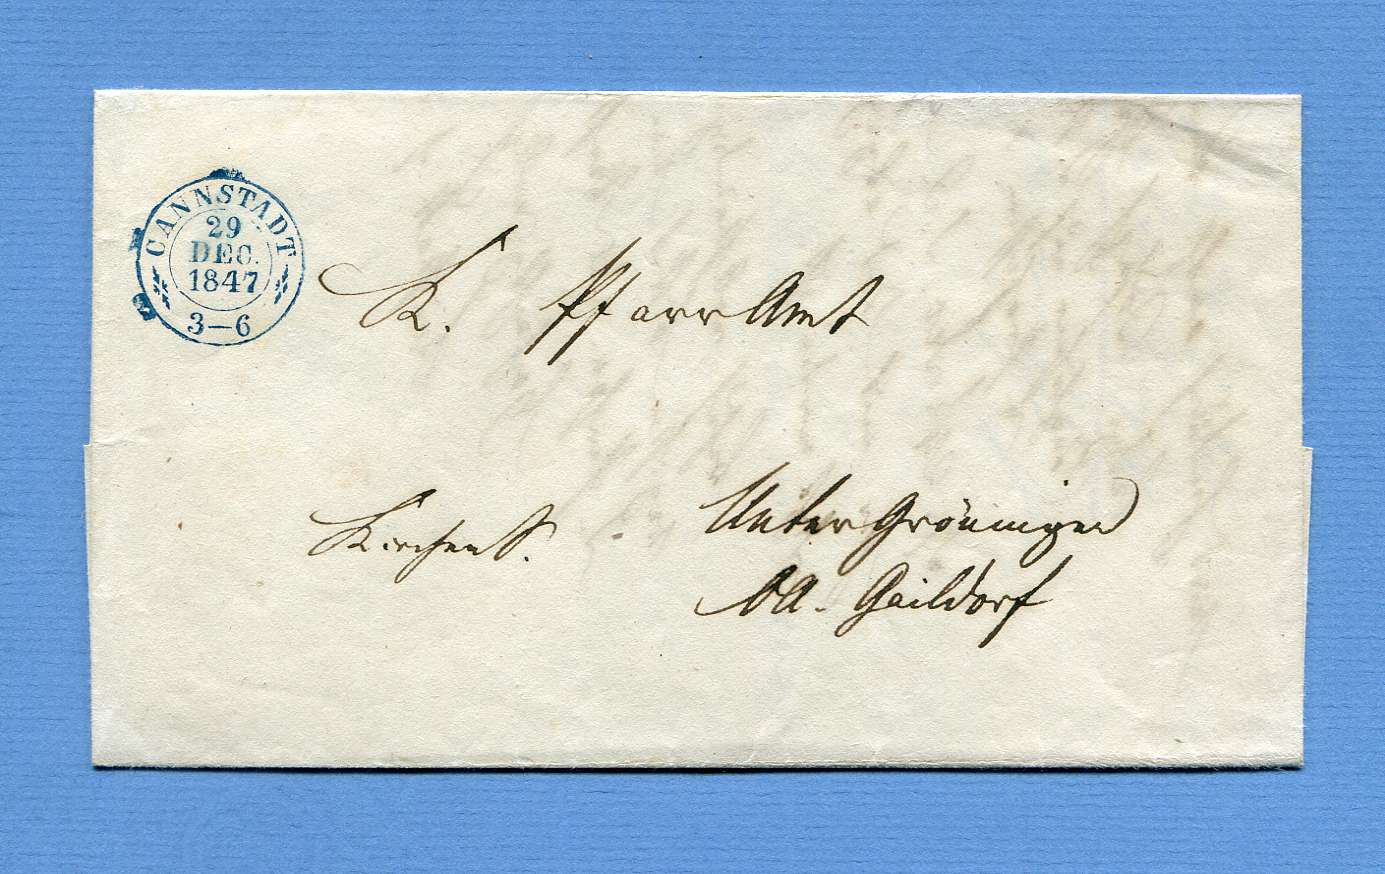 CANNSTADT
29
DEC.
1847
3-6
K. PfarrAmt
KirchenS. UnterGröningen
OA. Gaildorf